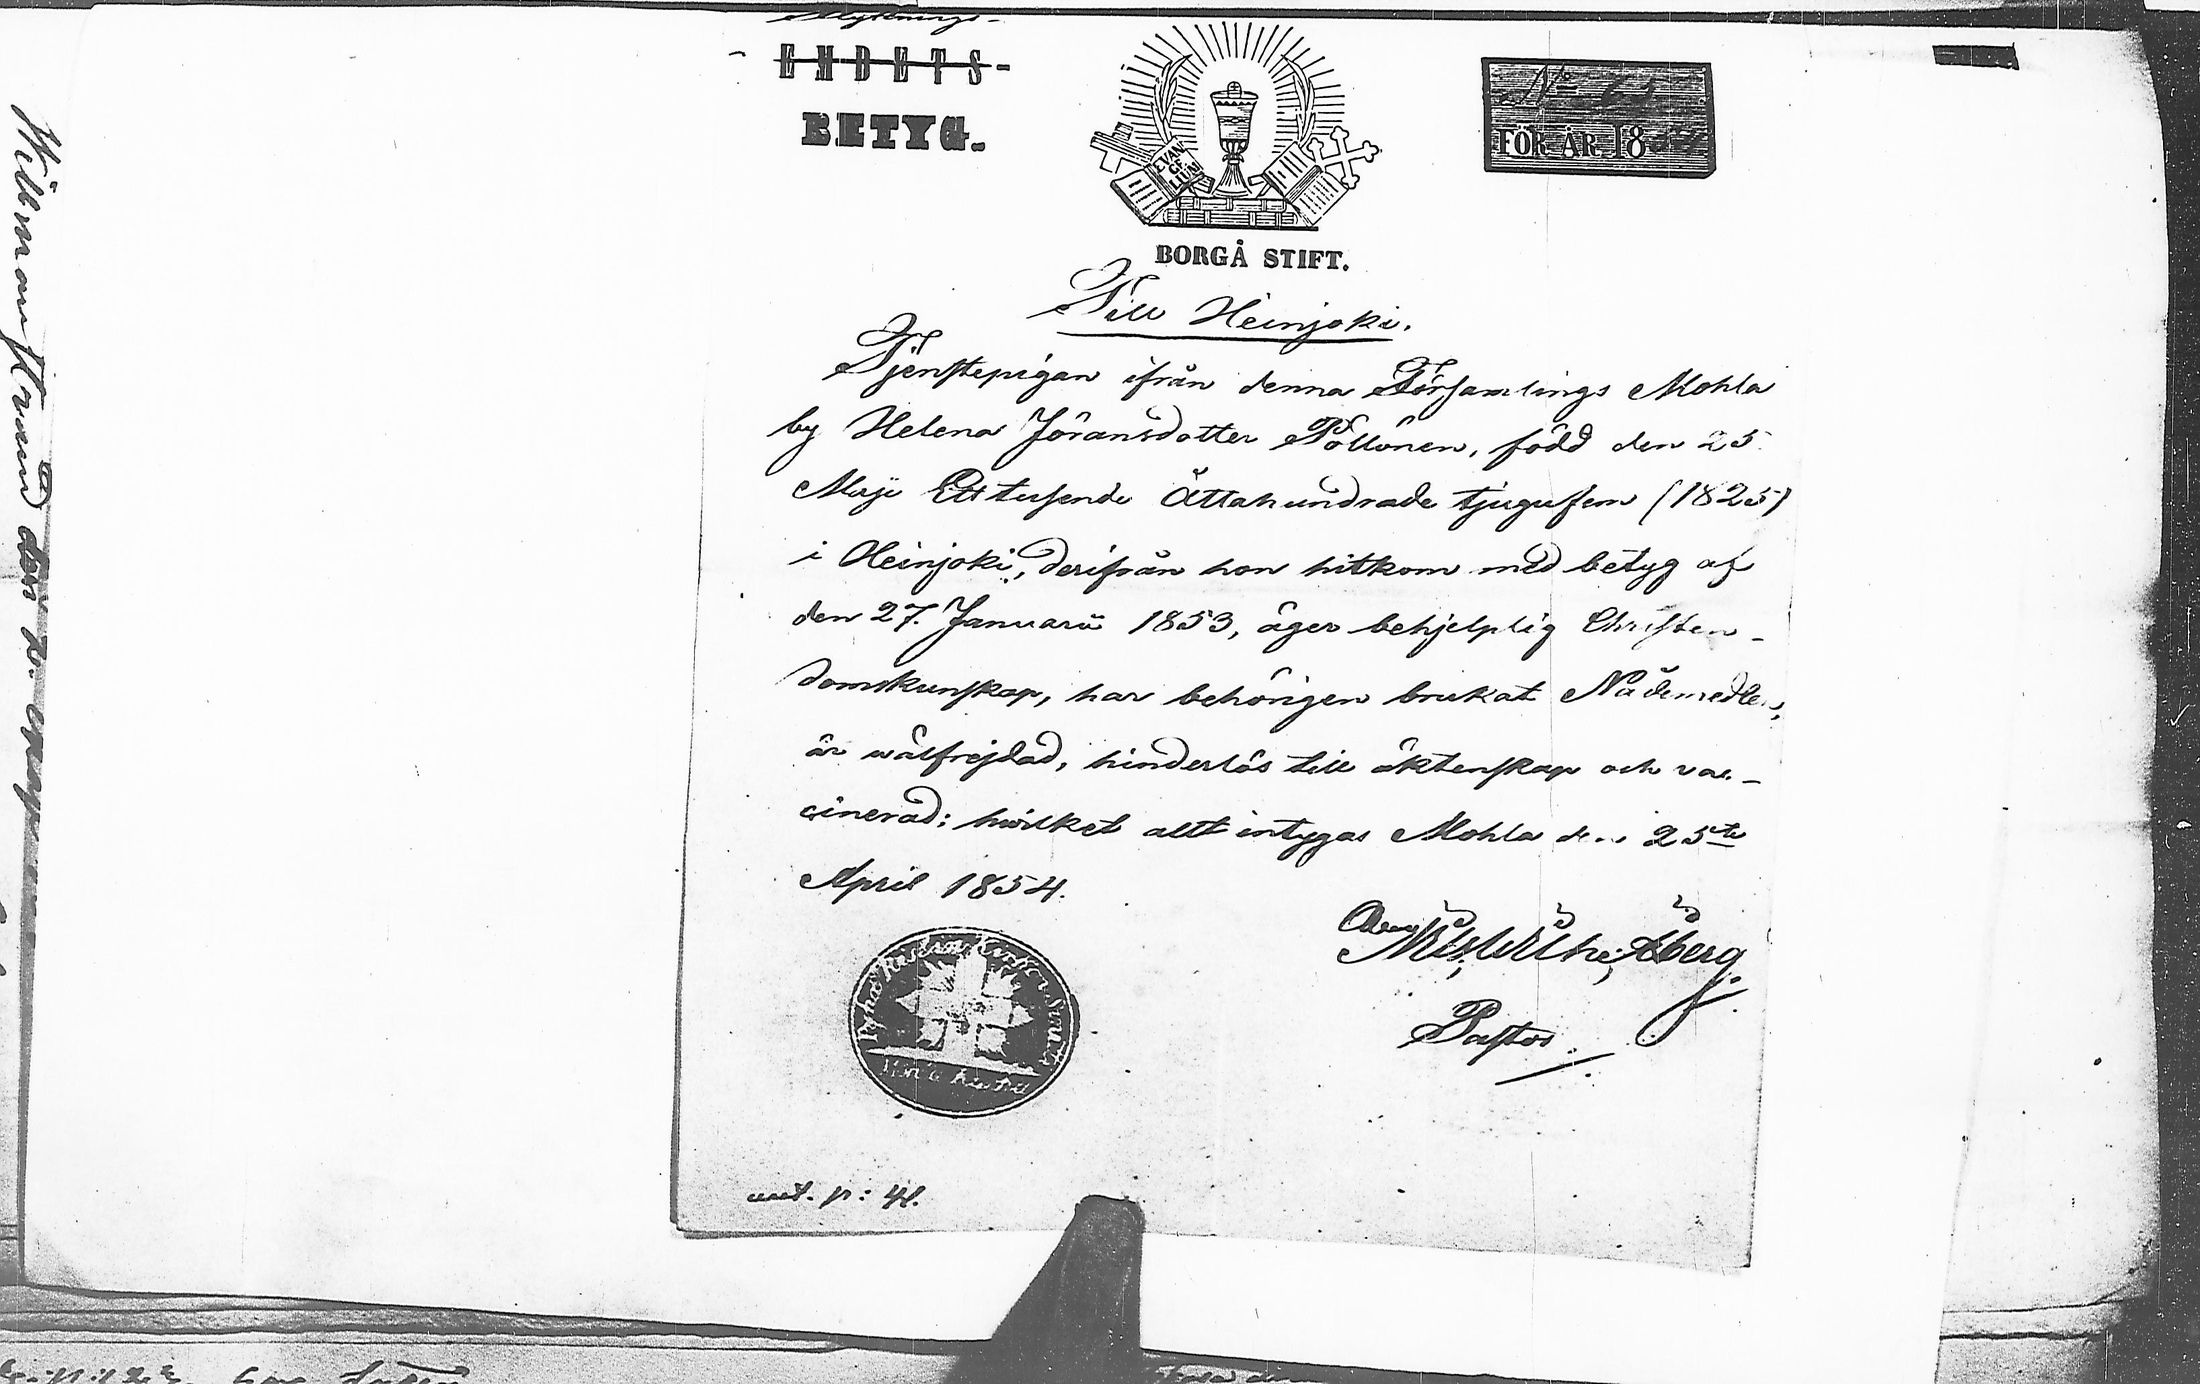 Flyttnings-
ENDETS-
BETYG.
EVAN
GE
LIUM
No 25
FÖR ÅR 1854
BORGÅ STIFT.
Till Heinjoki.
Tjenstepigan ifrån denna Församlings Mohla
by Helena Jöransdotter Pöllönen, född den 25
Maji Ett tusende Åttahundrade tjugufem (1825)
i Heinjoki, derifrån hon hitkom med betyg af
den 27. Januarii 1853, äger behjelplig Christen-
domskunskap, har behörigen brukat Nådemedlen,
är wälfrejdad, hinderlös till äktenskap och vac-
cinerad; hwilket allt intygas Mohla den 25te
April 1854.
Nils Wilh. Åberg
Pastor.
ant. p: 41.
Wilmanstrand den